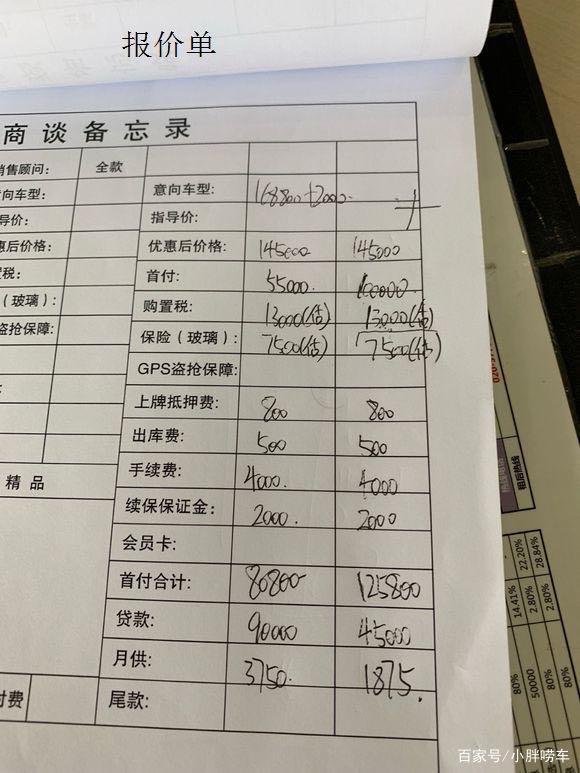 报价单
商谈备忘录
销售顾问: 全款
意向车型: 意向车型: 168800+2000.
指导价: 指导价:
优惠后价格: 优惠后价格: 145000 145000
购置税: 首付: 55000. 100000.
(玻璃): 购置税: 13000(估) 13000(估)
盗抢保障: 保险(玻璃): 7500(估) 7500(估)
GPS盗抢保障:
上牌抵押费: 800 800
出库费: 500 500
精品 手续费: 4000. 4000
续保保证金: 2000. 2000
会员卡:
首付合计: 80800 125800
贷款: 90000 45000
月供: 3750. 1875.
付费 尾款:
租后热线
22.20%
28.84%
14.41%
2.80%
2.80%
80%
50000
80%
百家号/小胖唠车